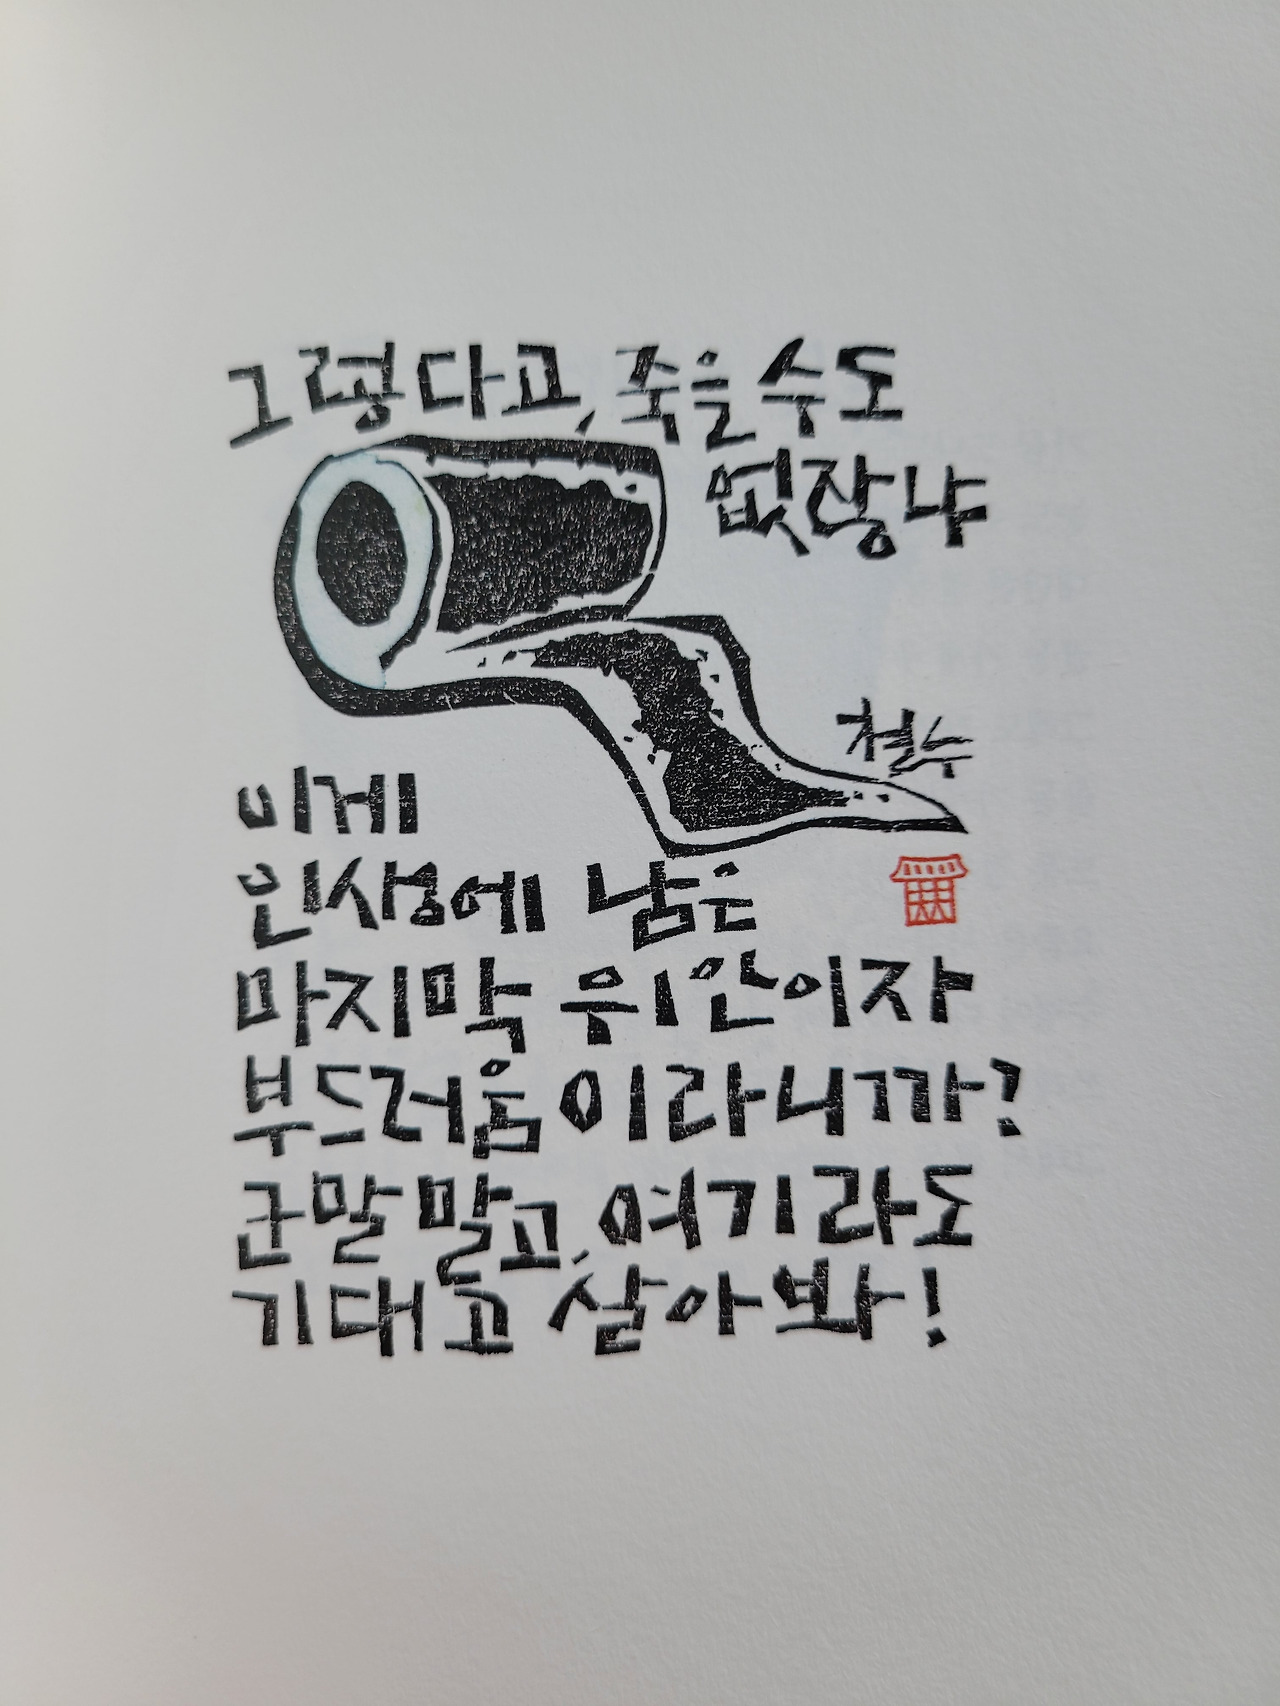 그렇다고, 죽을 수도
없잖냐
철수
이게
인생에 남은
마지막 위안이자
부드러움이라니까?
군말 말고, 여기라도
기대고 살아 봐!